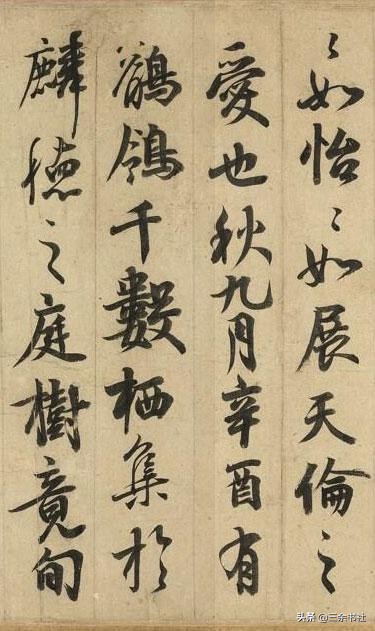 〻如怡〻如展天倫之
愛也秋九月辛酉有
鶺鴒千數栖集於
麟德之庭樹竟旬
头条 @三余书社